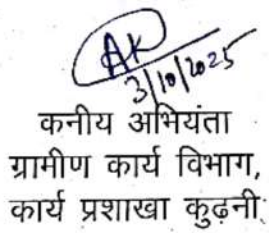 AK
3/10/2025
कनीय अभियंता
ग्रामीण कार्य विभाग,
कार्य प्रशाखा कुढ़नी